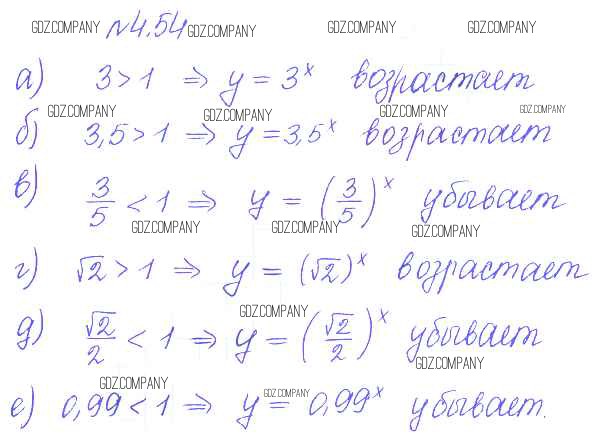 GDZ.COMPANY №4.54 GDZ.COMPANY GDZ.COMPANY GDZ.COMPANY
а) 3 > 1 ⇒ y = 3^x возрастает
GDZ.COMPANY GDZ.COMPANY GDZ.COMPANY GDZ.COMPANY
б) 3,5 > 1 ⇒ y = 3,5^x возрастает
в) 3/5 < 1 ⇒ y = (3/5)^x убывает
GDZ.COMPANY GDZ.COMPANY GDZ.COMPANY
г) √2 > 1 ⇒ y = (√2)^x возрастает
GDZ.COMPANY
д) √2/2 < 1 ⇒ y = (√2/2)^x убывает
GDZ.COMPANY
GDZ.COMPANY GDZ.COMPANY
е) 0,99 < 1 ⇒ y = 0,99^x убывает.